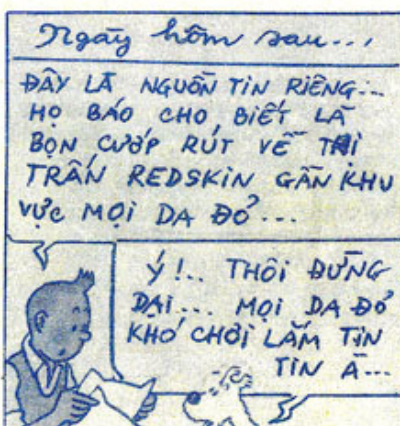 Ngày hôm sau...
ĐÂY LÀ NGUỒN TIN RIÊNG...
HỌ BÁO CHO BIẾT LÀ
BỌN CƯỚP RÚT VỀ THỊ
TRẤN REDSKIN GẦN KHU
VỰC MỌI DA ĐỎ...
Ý!.. THÔI ĐỪNG
DẠI... MỌI DA ĐỎ
KHÓ CHƠI LẮM TIN
TIN À...